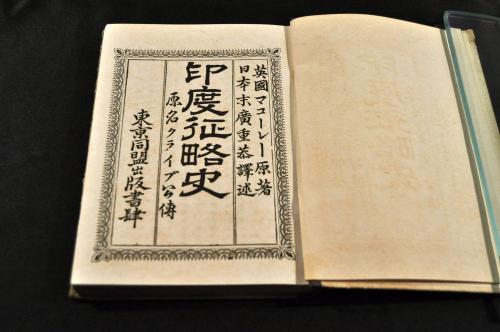 英國マコーレー原著
日本末廣重恭譯述
印度征略史
原名クライブ公傳
東京同盟出版書肆